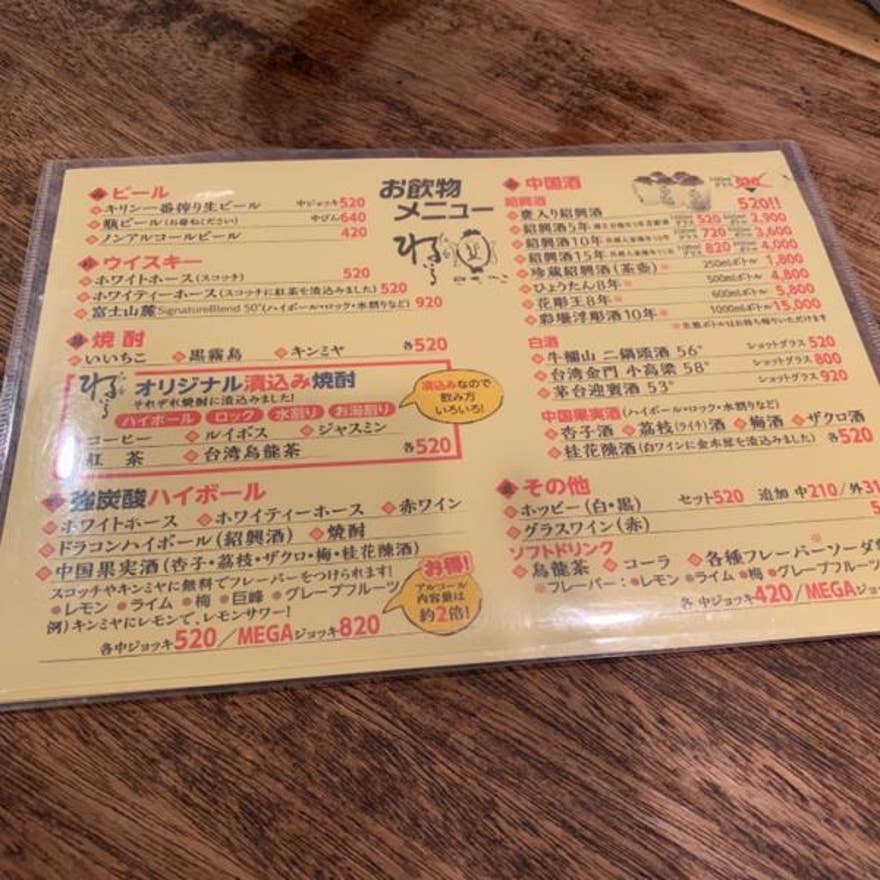 お飲物
メニュー
ビール
キリン一番搾り生ビール 中ジョッキ520
瓶ビール(お尋ねください) 中びん640
ノンアルコールビール 420
ウイスキー
ホワイトホース(スコッチ) 520
ホワイティーホース(スコッチに紅茶を漬込みました) 520
富士山麓SignatureBlend 50°(ハイボール・ロック・水割りなど) 920
焼酎
いいちこ 黒霧島 キンミヤ 各520
オリジナル漬込み焼酎
それぞれ焼酎に漬込みました!
ハイボール ロック 水割り お湯割り
漬込みなので
飲み方
いろいろ!
コーヒー ルイボス ジャスミン
紅茶 台湾烏龍茶 各520
強炭酸ハイボール
ホワイトホース ホワイティーホース 赤ワイン
ドラゴンハイボール(紹興酒) 焼酎
中国果実酒(杏子・荔枝・ザクロ・梅・桂花陳酒)
スコッチやキンミヤに無料でフレーバーをつけられます!
レモン ライム 梅 巨峰 グレープフルーツ
例)キンミヤにレモンで、レモンサワー!
各中ジョッキ520/MEGAジョッキ820
お得!
アルコール
内容量は
約2倍!
中国酒
紹興酒
520!!
甕入り紹興酒
紹興酒5年 520 2,900
紹興酒10年 720 3,600
紹興酒15年 820 4,000
珍蔵紹興酒(茶壺)※ 250mlボトル 1,800
ひょうたん8年※ 500mlボトル 4,800
花彫王8年※ 600mlボトル 5,800
彩堰浮彫酒10年※ 1000mlボトル 15,000
※空瓶ボトルはお持ち帰りいただけます
白酒
牛欄山 二鍋頭酒 56° ショットグラス 520
台湾金門 小高梁 58° ショットグラス 800
茅台迎賓酒 53° ショットグラス 920
中国果実酒(ハイボール・ロック・水割りなど)
杏子酒 荔枝(ライチ)酒 梅酒 ザクロ酒
桂花陳酒(白ワインに金木犀を漬込みました) 各520
その他
ホッピー(白・黒) セット520 追加 中210/外31
グラスワイン(赤) 5
ソフトドリンク
烏龍茶 コーラ 各種フレーバーソーダ※
※フレーバー:レモン ライム 梅 グレープフルーツ
各 中ジョッキ420/MEGAジョ